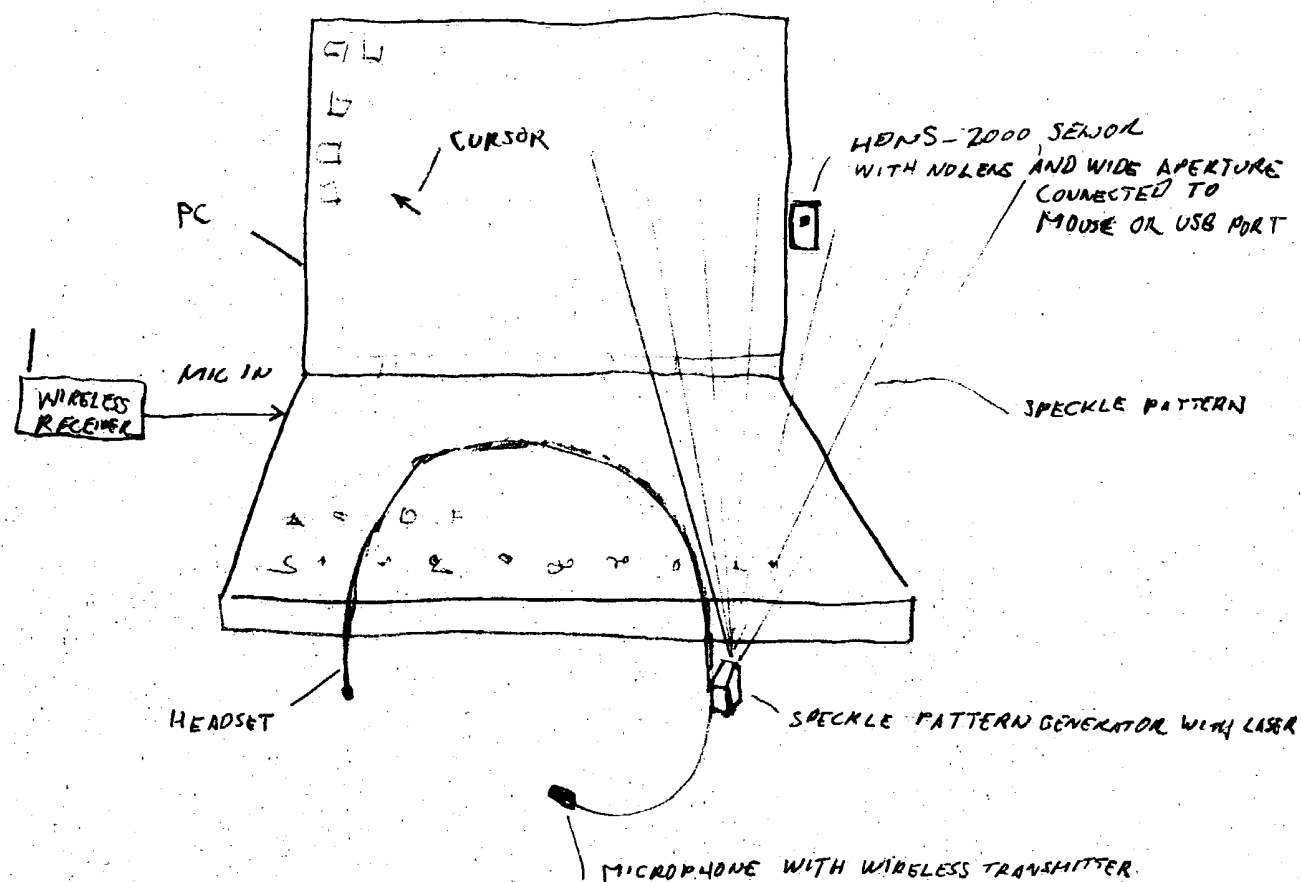 CURSOR
HDNS-2000 SENSOR
WITH NO LENS AND WIDE APERTURE
CONNECTED TO
MOUSE OR USB PORT
PC
MIC IN
WIRELESS
RECEIVER
SPECKLE PATTERN
HEADSET
SPECKLE PATTERN GENERATOR WITH LASER
MICROPHONE WITH WIRELESS TRANSMITTER